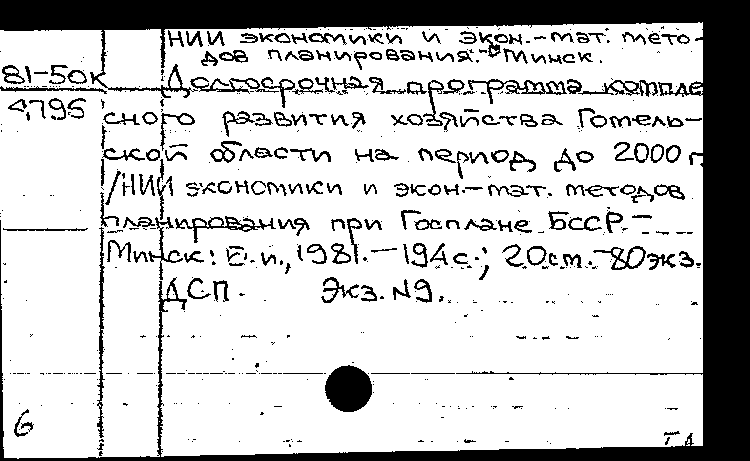 НИИ экономики и экон.-мат. мето-
дов планирования. Минск.
81-50к Долгосрочная программа компле
4795 сного развития хозяйства Гомель-
ской области на период до 2000 г
/НИИ экономики и экон.-мат. методов
планирования при Госплане БССР.-
Минск: Б.и., 1981.-194с.; 20см.-80экз.
ДСП. Экз. N9.
6